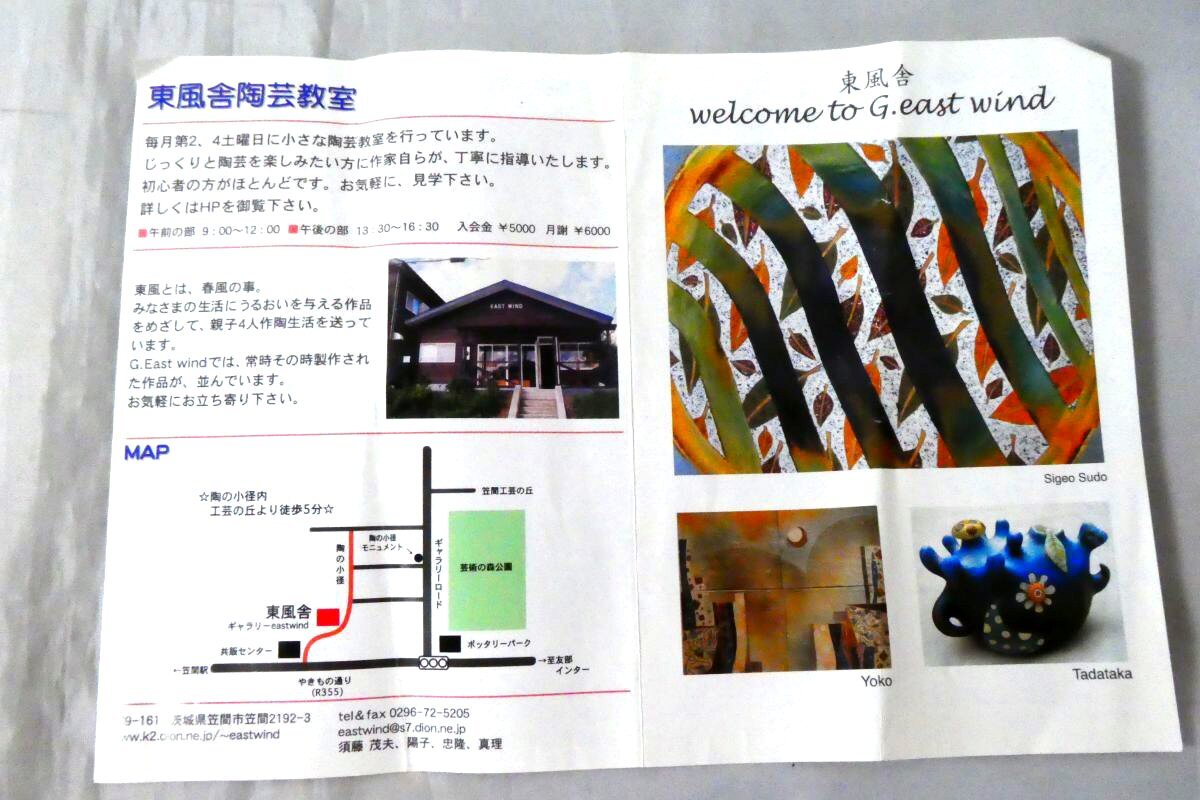 東風舎陶芸教室
毎月第2、4土曜日に小さな陶芸教室を行っています。
じっくりと陶芸を楽しみたい方に作家自らが、丁寧に指導いたします。
初心者の方がほとんどです。お気軽に、見学下さい。
詳しくはHPを御覧下さい。
午前の部 9:00～12:00 午後の部 13:30～16:30 入会金 ¥5000 月謝 ¥6000
東風とは、春風の事。
みなさまの生活にうるおいを与える作品
をめざして、親子4人作陶生活を送って
います。
G.East windでは、常時その時製作され
た作品が、並んでいます。
お気軽にお立ち寄り下さい。
EAST WIND
MAP
☆陶の小径内
工芸の丘より徒歩5分☆
笠間工芸の丘
陶の小径
モニュメント
陶の小径
ギャラリーロード
芸術の森公園
東風舎
ギャラリーeastwind
共販センター
ポッタリーパーク
←笠間駅
→至友部
インター
やきもの通り
(R355)
9-161 茨城県笠間市笠間2192-3
tel＆fax 0296-72-5205
ww.k2.dion.ne.jp/~eastwind
eastwind@s7.dion.ne.jp
須藤 茂夫、陽子、忠隆、真理
東風舎
welcome to G.east wind
Sigeo Sudo
Yoko
Tadataka